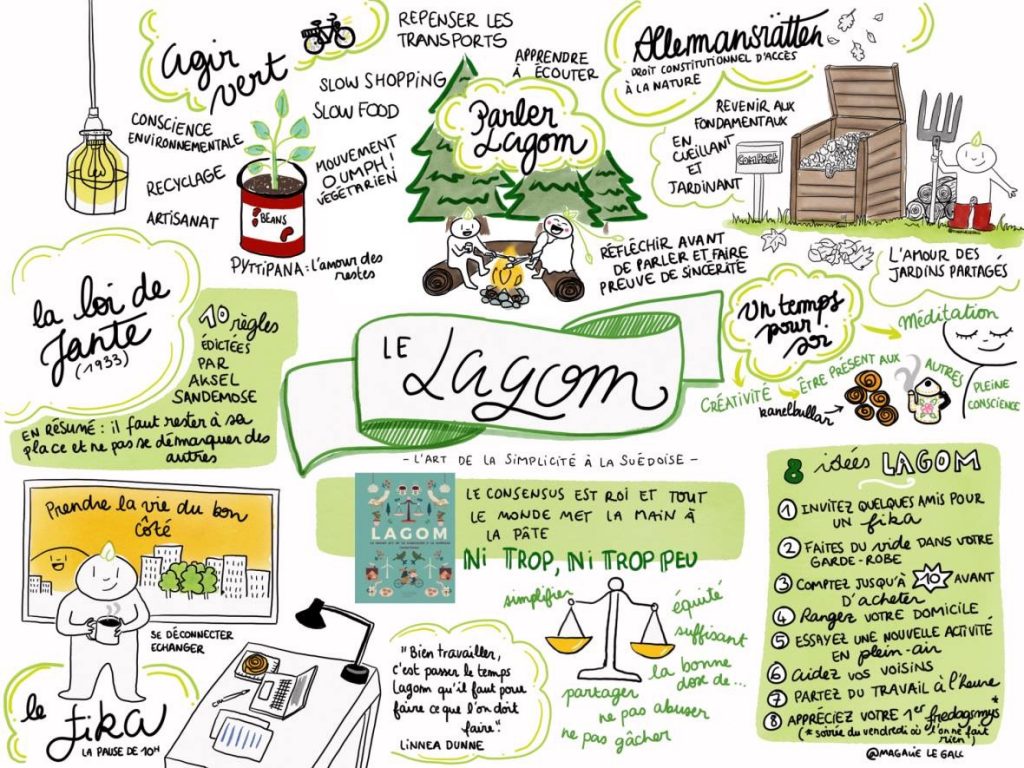 agir
vert
REPENSER LES
TRANSPORTS
SLOW SHOPPING
SLOW FOOD
MOUVEMENT
OUMPH!
VÉGÉTARIEN
CONSCIENCE
ENVIRONNEMENTALE
RECYCLAGE
ARTISANAT
BEANS
PYTTIPANA : l'amour des
restes
APPRENDRE
À ÉCOUTER
Parler
Lagom
RÉFLÉCHIR AVANT
DE PARLER ET FAIRE
PREUVE DE SINCÉRITÉ
Allemansrätten
DROIT CONSTITUTIONNEL D'ACCÈS
À LA NATURE
REVENIR AUX
FONDAMENTAUX
EN
CUEILLANT
ET
JARDINANT
COMPOST
L'AMOUR DES
JARDINS PARTAGÉS
la loi de
Jante
(1933)
10 règles
ÉDICTÉES
PAR
AKSEL
SANDEMOSE
EN RÉSUMÉ : il faut rester à sa
place et ne pas se démarquer des
autres
LE Lagom
- L'ART DE LA SIMPLICITÉ À LA SUÉDOISE -
Un temps
pour
soi
Méditation
CRÉATIVITÉ
ÊTRE PRÉSENT AUX
AUTRES
PLEINE
CONSCIENCE
kanelbullar
Prendre la vie du bon
côté
SE DÉCONNECTER
ECHANGER
le
fika
LA PAUSE DE 10H
LAGOM
LE CONSENSUS EST ROI ET TOUT
LE MONDE MET LA MAIN À
LA PÂTE
Ni TROP, Ni TROP PEU
simplifier
équité
suffisant
la bonne
dose de...
partager
ne pas abuser
ne pas gâcher
"Bien travailler,
c'est passer le temps
Lagom qu'il faut pour
faire ce que l'on doit
faire".
LiNNEA DUNNE
8 idées LAGOM
1 INVITEZ QUELQUES AMIS POUR
UN fika
2 FAITES DU vide DANS VOTRE
GARDE-ROBE
3 COMPTEZ JUSQU'À 10 AVANT
D'ACHETER
4 Ranger VOTRE DOMICILE
5 ESSAYEZ UNE NOUVELLE ACTIVITÉ
EN plein-air
6 aidez vos voisins
7 PARTEZ DU TRAVAIL à l'heure
8 APPRÉCIEZ VOTRE 1er fredagsmys*
(* soirée du vendredi où l'on ne fait
rien)
@MAGALIE LE GALL